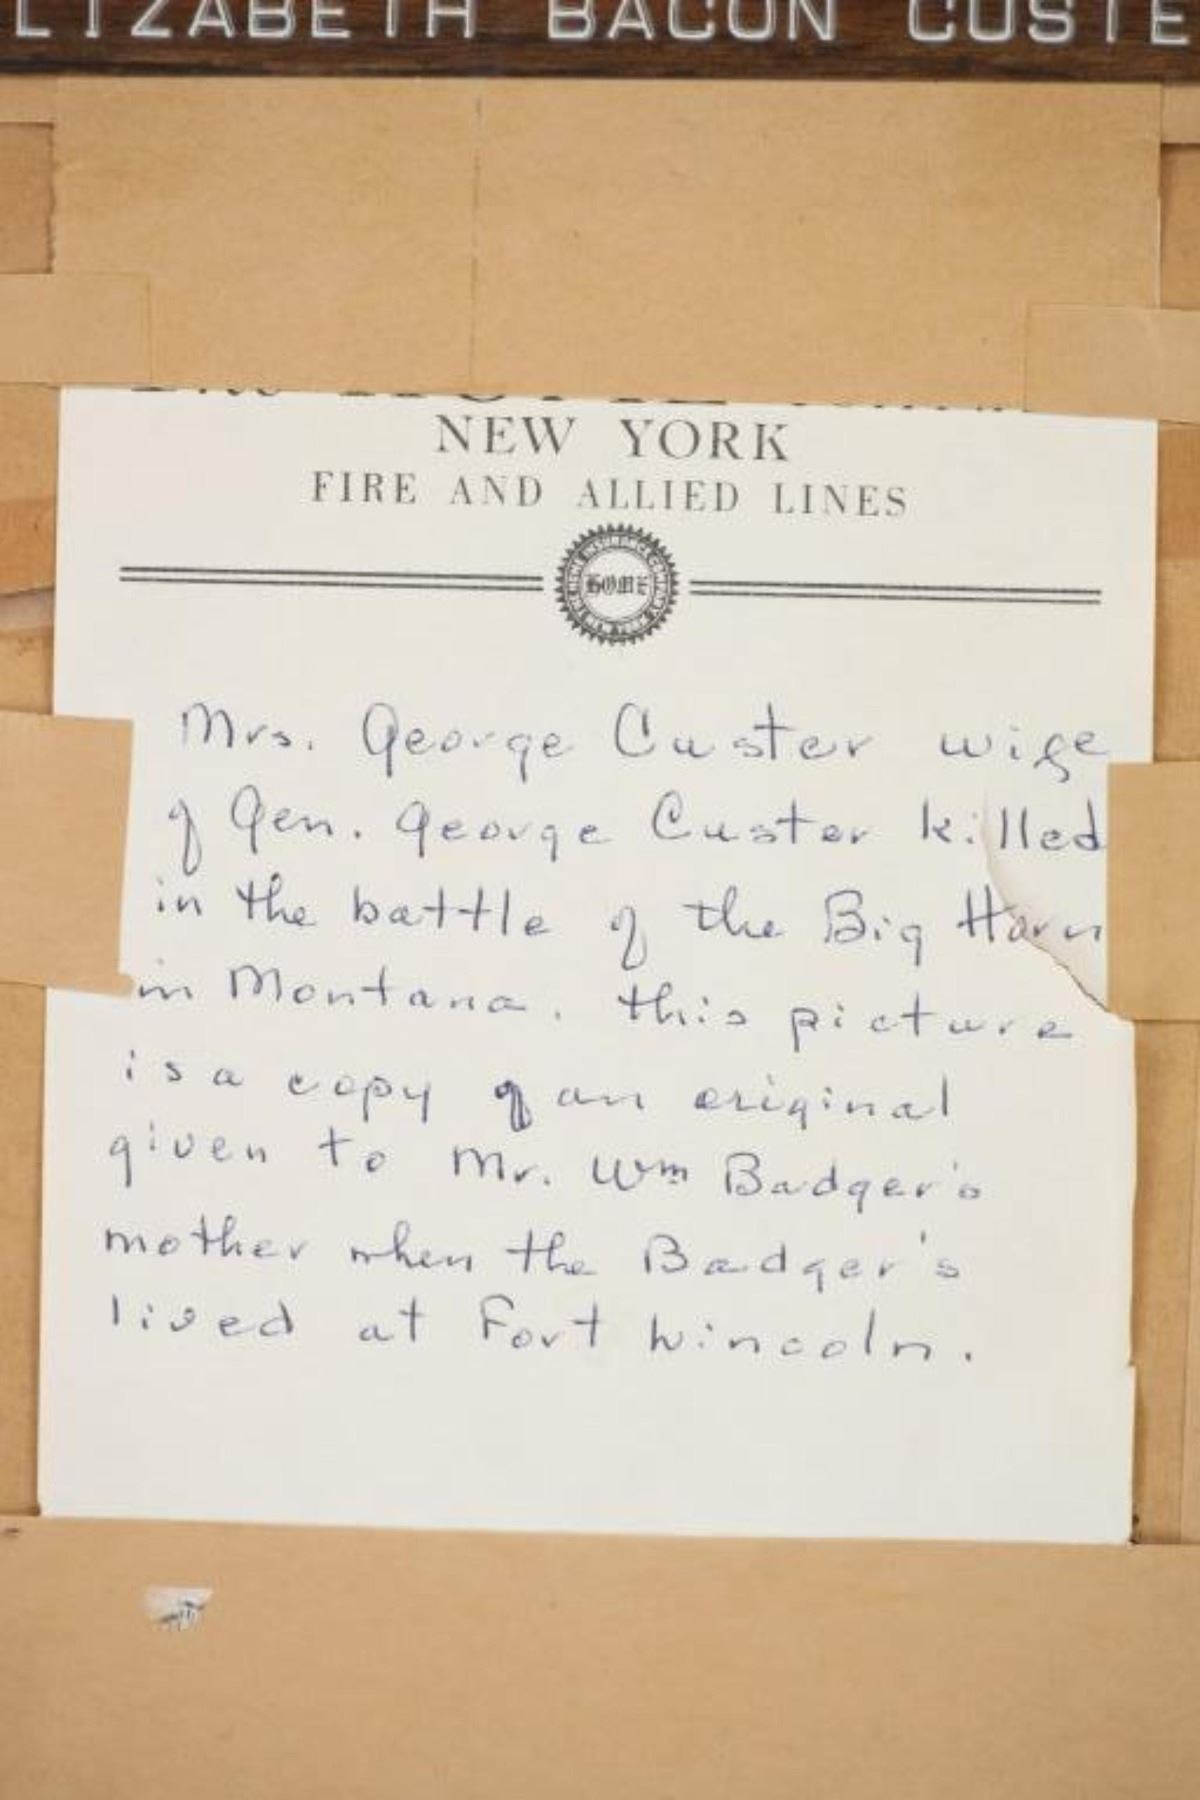 LIZABETH BACON CUSTE
NEW YORK
FIRE AND ALLIED LINES
HOME
Mrs. George Custer wife
of Gen. George Custer killed
in the battle of the Big Horn
in Montana. This picture
is a copy of an original
given to Mr. Wm Badger's
mother when the Badger's
lived at Fort Lincoln.